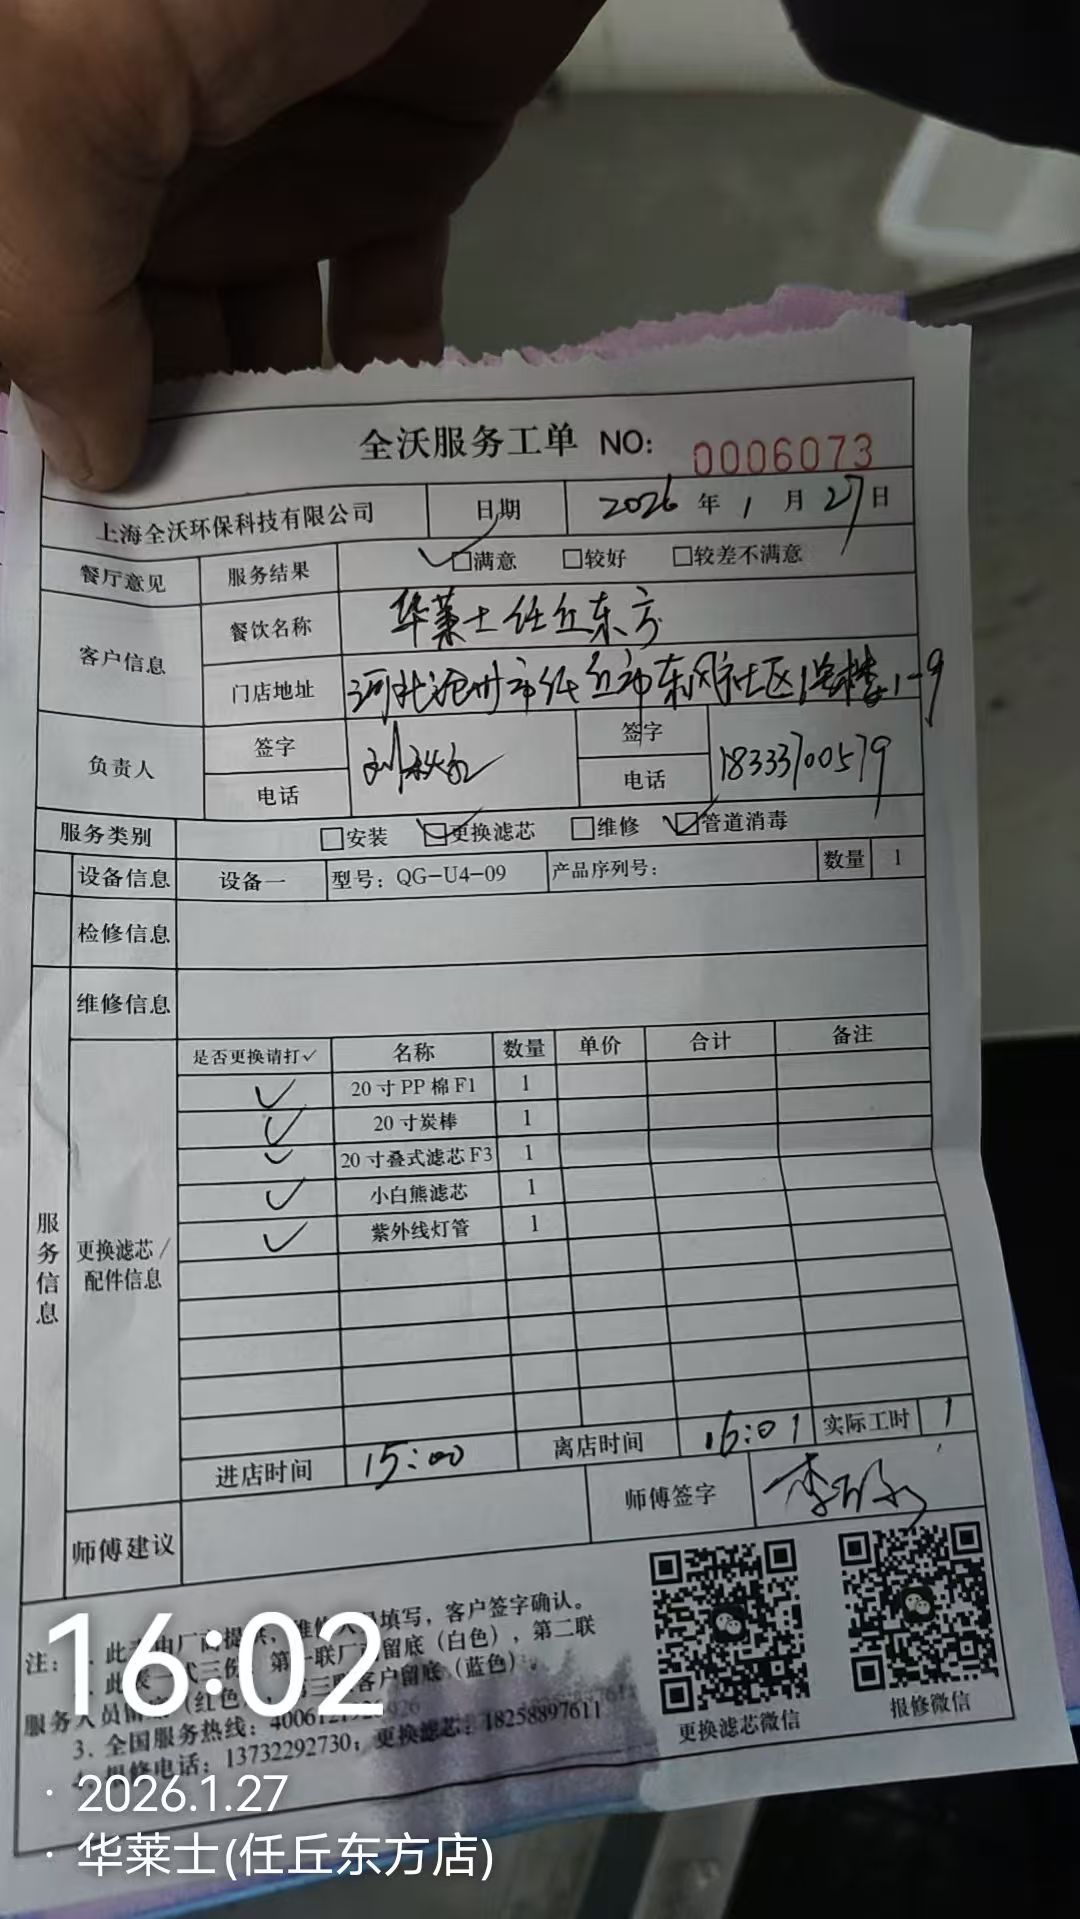 全沃服务工单 NO: 0006073
上海全沃环保科技有限公司 日期 2026年1月27日
餐厅意见 服务结果 ☑满意 □较好 □较差不满意
客户信息 餐饮名称 华莱士任丘东方
门店地址 河北沧州市任丘市东风社区1号楼1-9
负责人 签字 签字
电话 电话 18333700579
服务类别 □安装 ☑更换滤芯 □维修 ☑管道消毒
设备信息 设备一 型号：QG-U4-09 产品序列号： 数量 1
检修信息
维修信息
服务信息
更换滤芯/配件信息
是否更换请打✓ 名称 数量 单价 合计 备注
✓ 20寸PP棉F1 1
✓ 20寸炭棒 1
✓ 20寸叠式滤芯F3 1
✓ 小白熊滤芯 1
✓ 紫外线灯管 1
进店时间 15:00 离店时间 16:01 实际工时 1
师傅建议 师傅签字
注：
填写，客户签字确认。
留底（白色），第二联
服务人员留底（红色），第三联客户留底（蓝色）。
3. 全国服务热线：
报修电话：13732292730；更换滤芯：18258897611
更换滤芯微信 报修微信
16:02
· 2026.1.27
· 华莱士(任丘东方店)